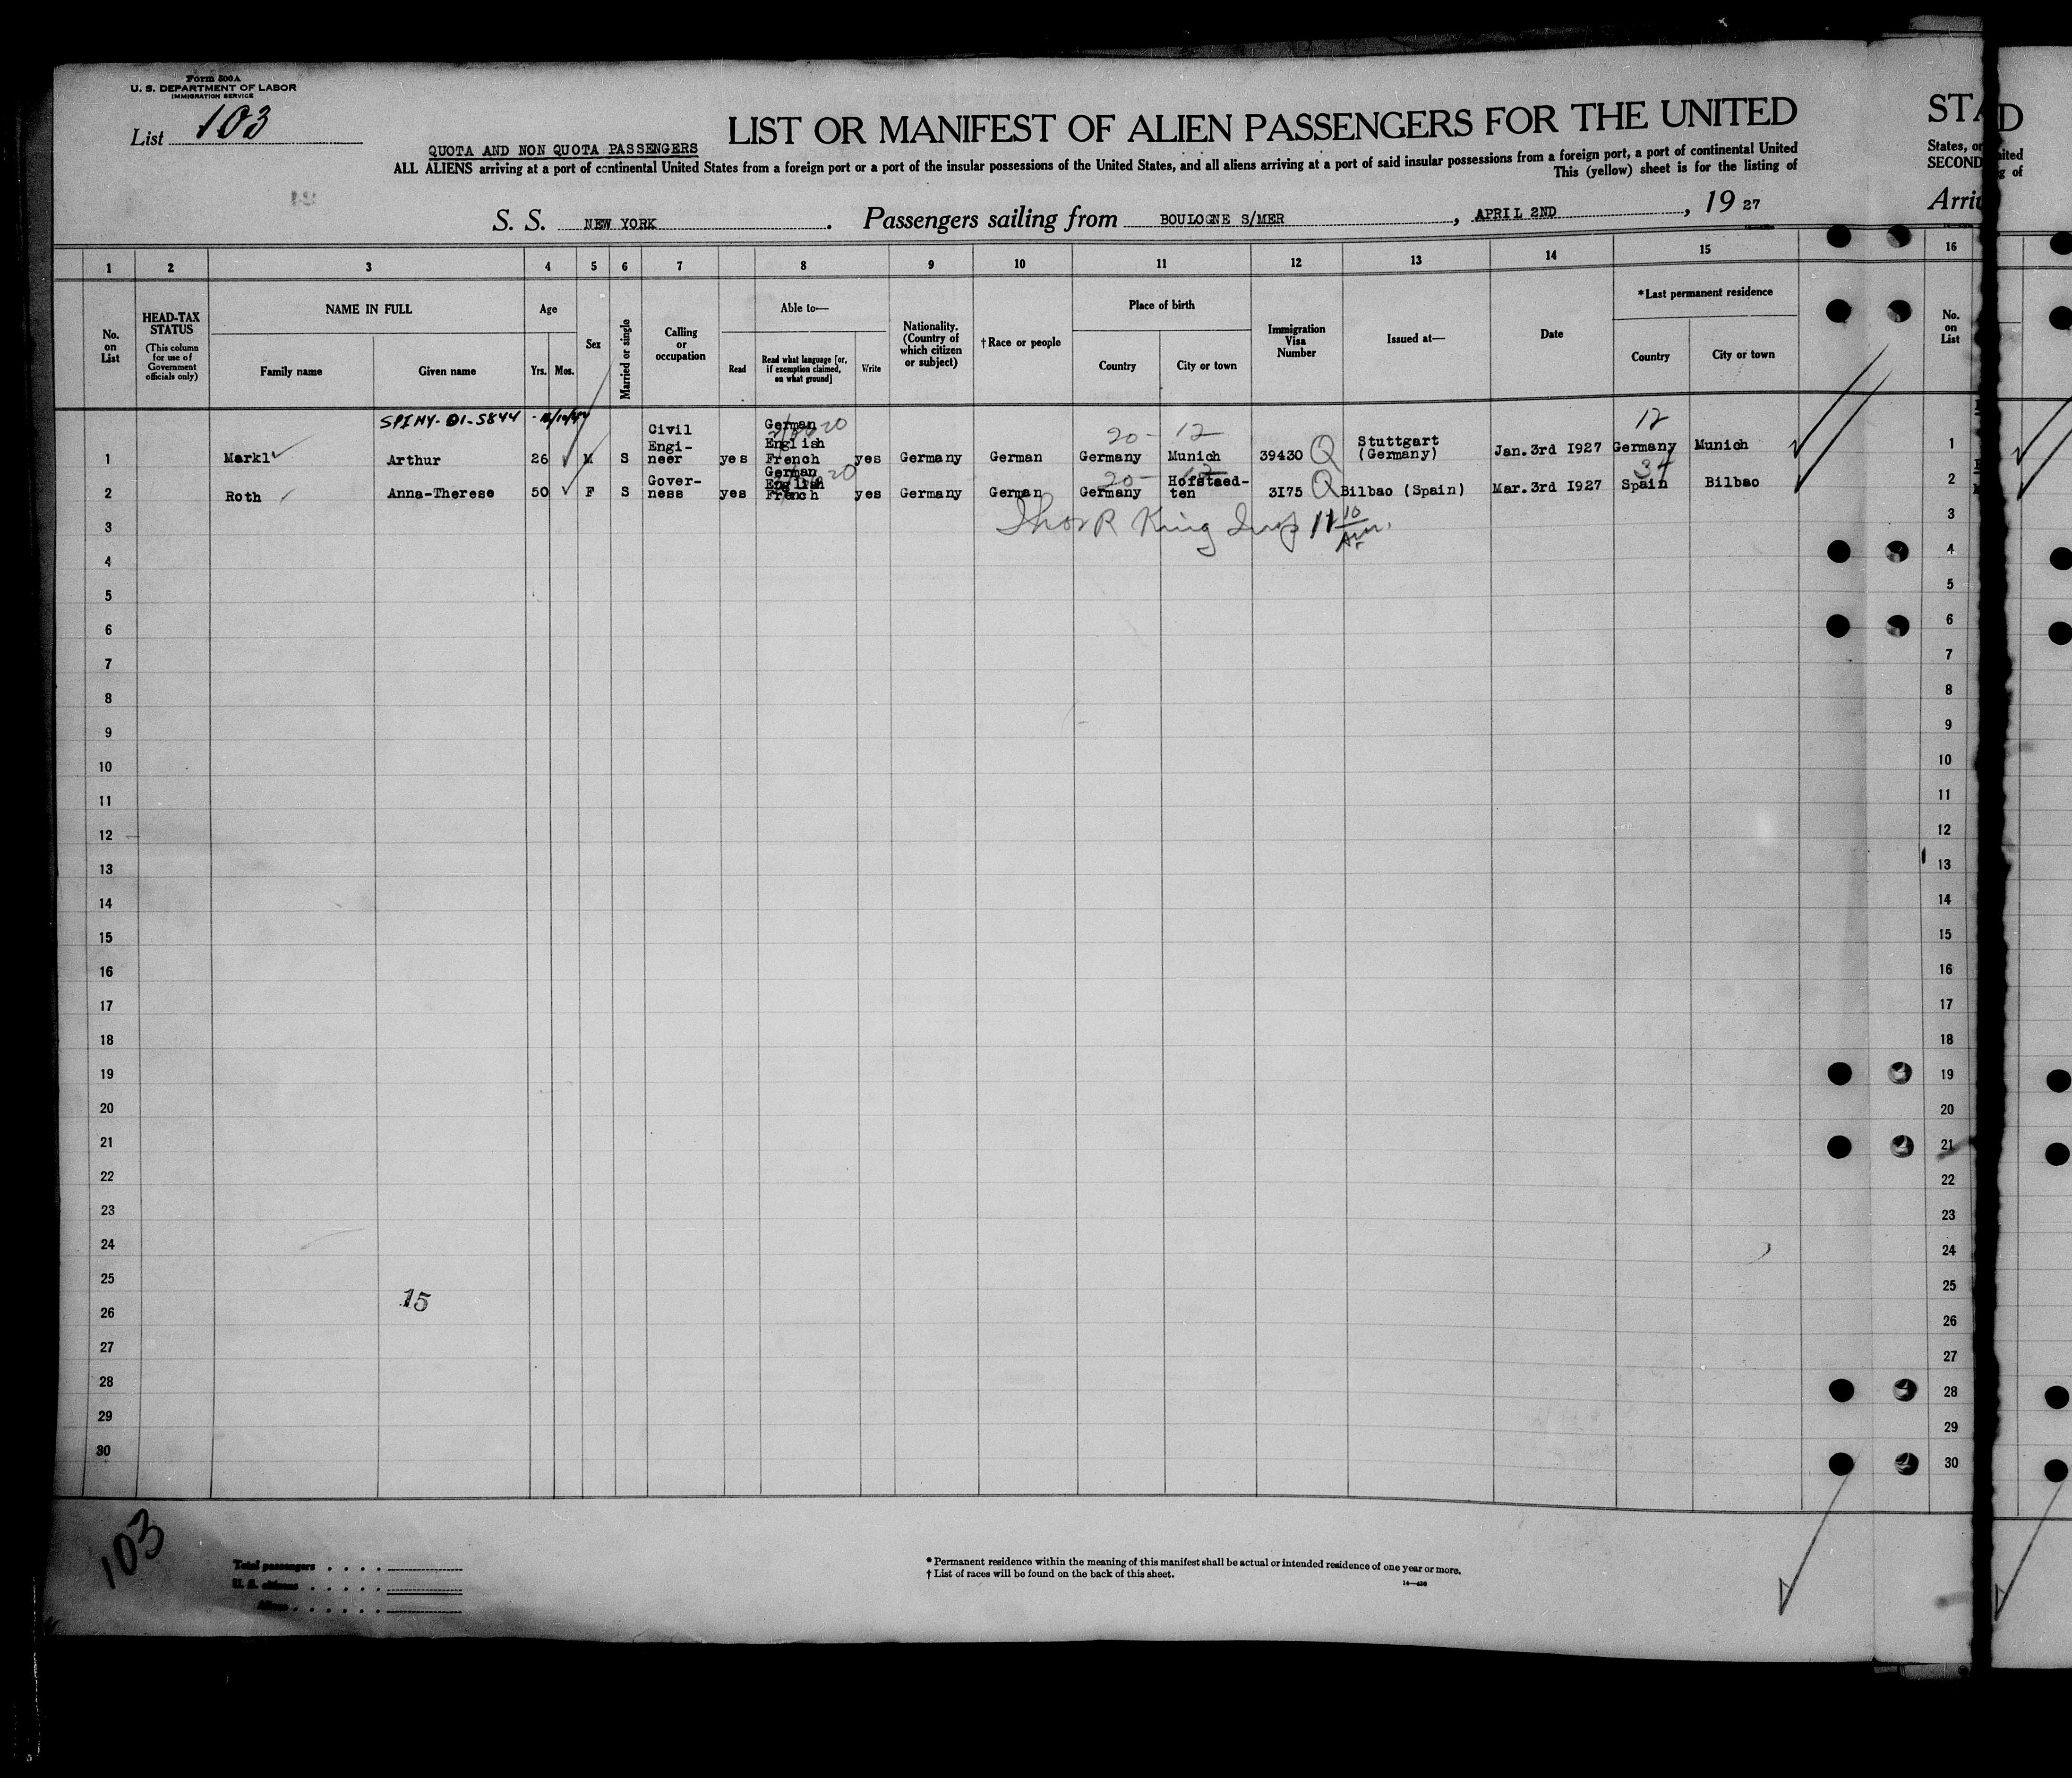 Form 500A
U. S. DEPARTMENT OF LABOR
IMMIGRATION SERVICE
List 103
LIST OR MANIFEST OF ALIEN PASSENGERS FOR THE UNITED
QUOTA AND NON QUOTA PASSENGERS
ALL ALIENS arriving at a port of continental United States from a foreign port or a port of the insular possessions of the United States, and all aliens arriving at a port of said insular possessions from a foreign port, a port of continental United
This (yellow) sheet is for the listing of
S. S. NEW YORK. Passengers sailing from BOULOGNE S/MER, APRIL 2ND, 19 27
STA
States, or
SECOND
Arri
D
ited
g of
1 2 3 4 5 6 7 8 9 10 11 12 13 14 15 16
No. on List
HEAD-TAX STATUS
(This column for use of Government officials only)
NAME IN FULL
Family name
Given name
Age
Yrs. Mos.
Sex
Married or single
Calling or occupation
Able to—
Read
Read what language [or, if exemption claimed, on what ground]
Write
Nationality. (Country of which citizen or subject)
†Race or people
Place of birth
Country
City or town
Immigration Visa Number
Issued at—
Date
*Last permanent residence
Country
City or town
No. on List
1 Markl Arthur 26 M S Civil Engi-neer yes German English French yes Germany German 20- 12 Germany Munich 39430 Q Stuttgart (Germany) Jan.3rd 1927 12 Germany Munich 1
2 Roth Anna-Therese 50 F S Gover-ness yes German English French yes Germany German 20- Germany Hofstaed-ten 3175 Q Bilbao (Spain) Mar.3rd 1927 Spain Bilbao 2
3 3
4 4
5 5
6 6
7 7
8 8
9 9
10 10
11 11
12 12
13 13
14 14
15 15
16 16
17 17
18 18
19 19
20 20
21 21
22 22
23 23
24 24
25 25
15
26 26
27 27
28 28
29 29
30 30
103
Total passengers
U. S. citizens
Aliens
* Permanent residence within the meaning of this manifest shall be actual or intended residence of one year or more.
† List of races will be found on the back of this sheet.